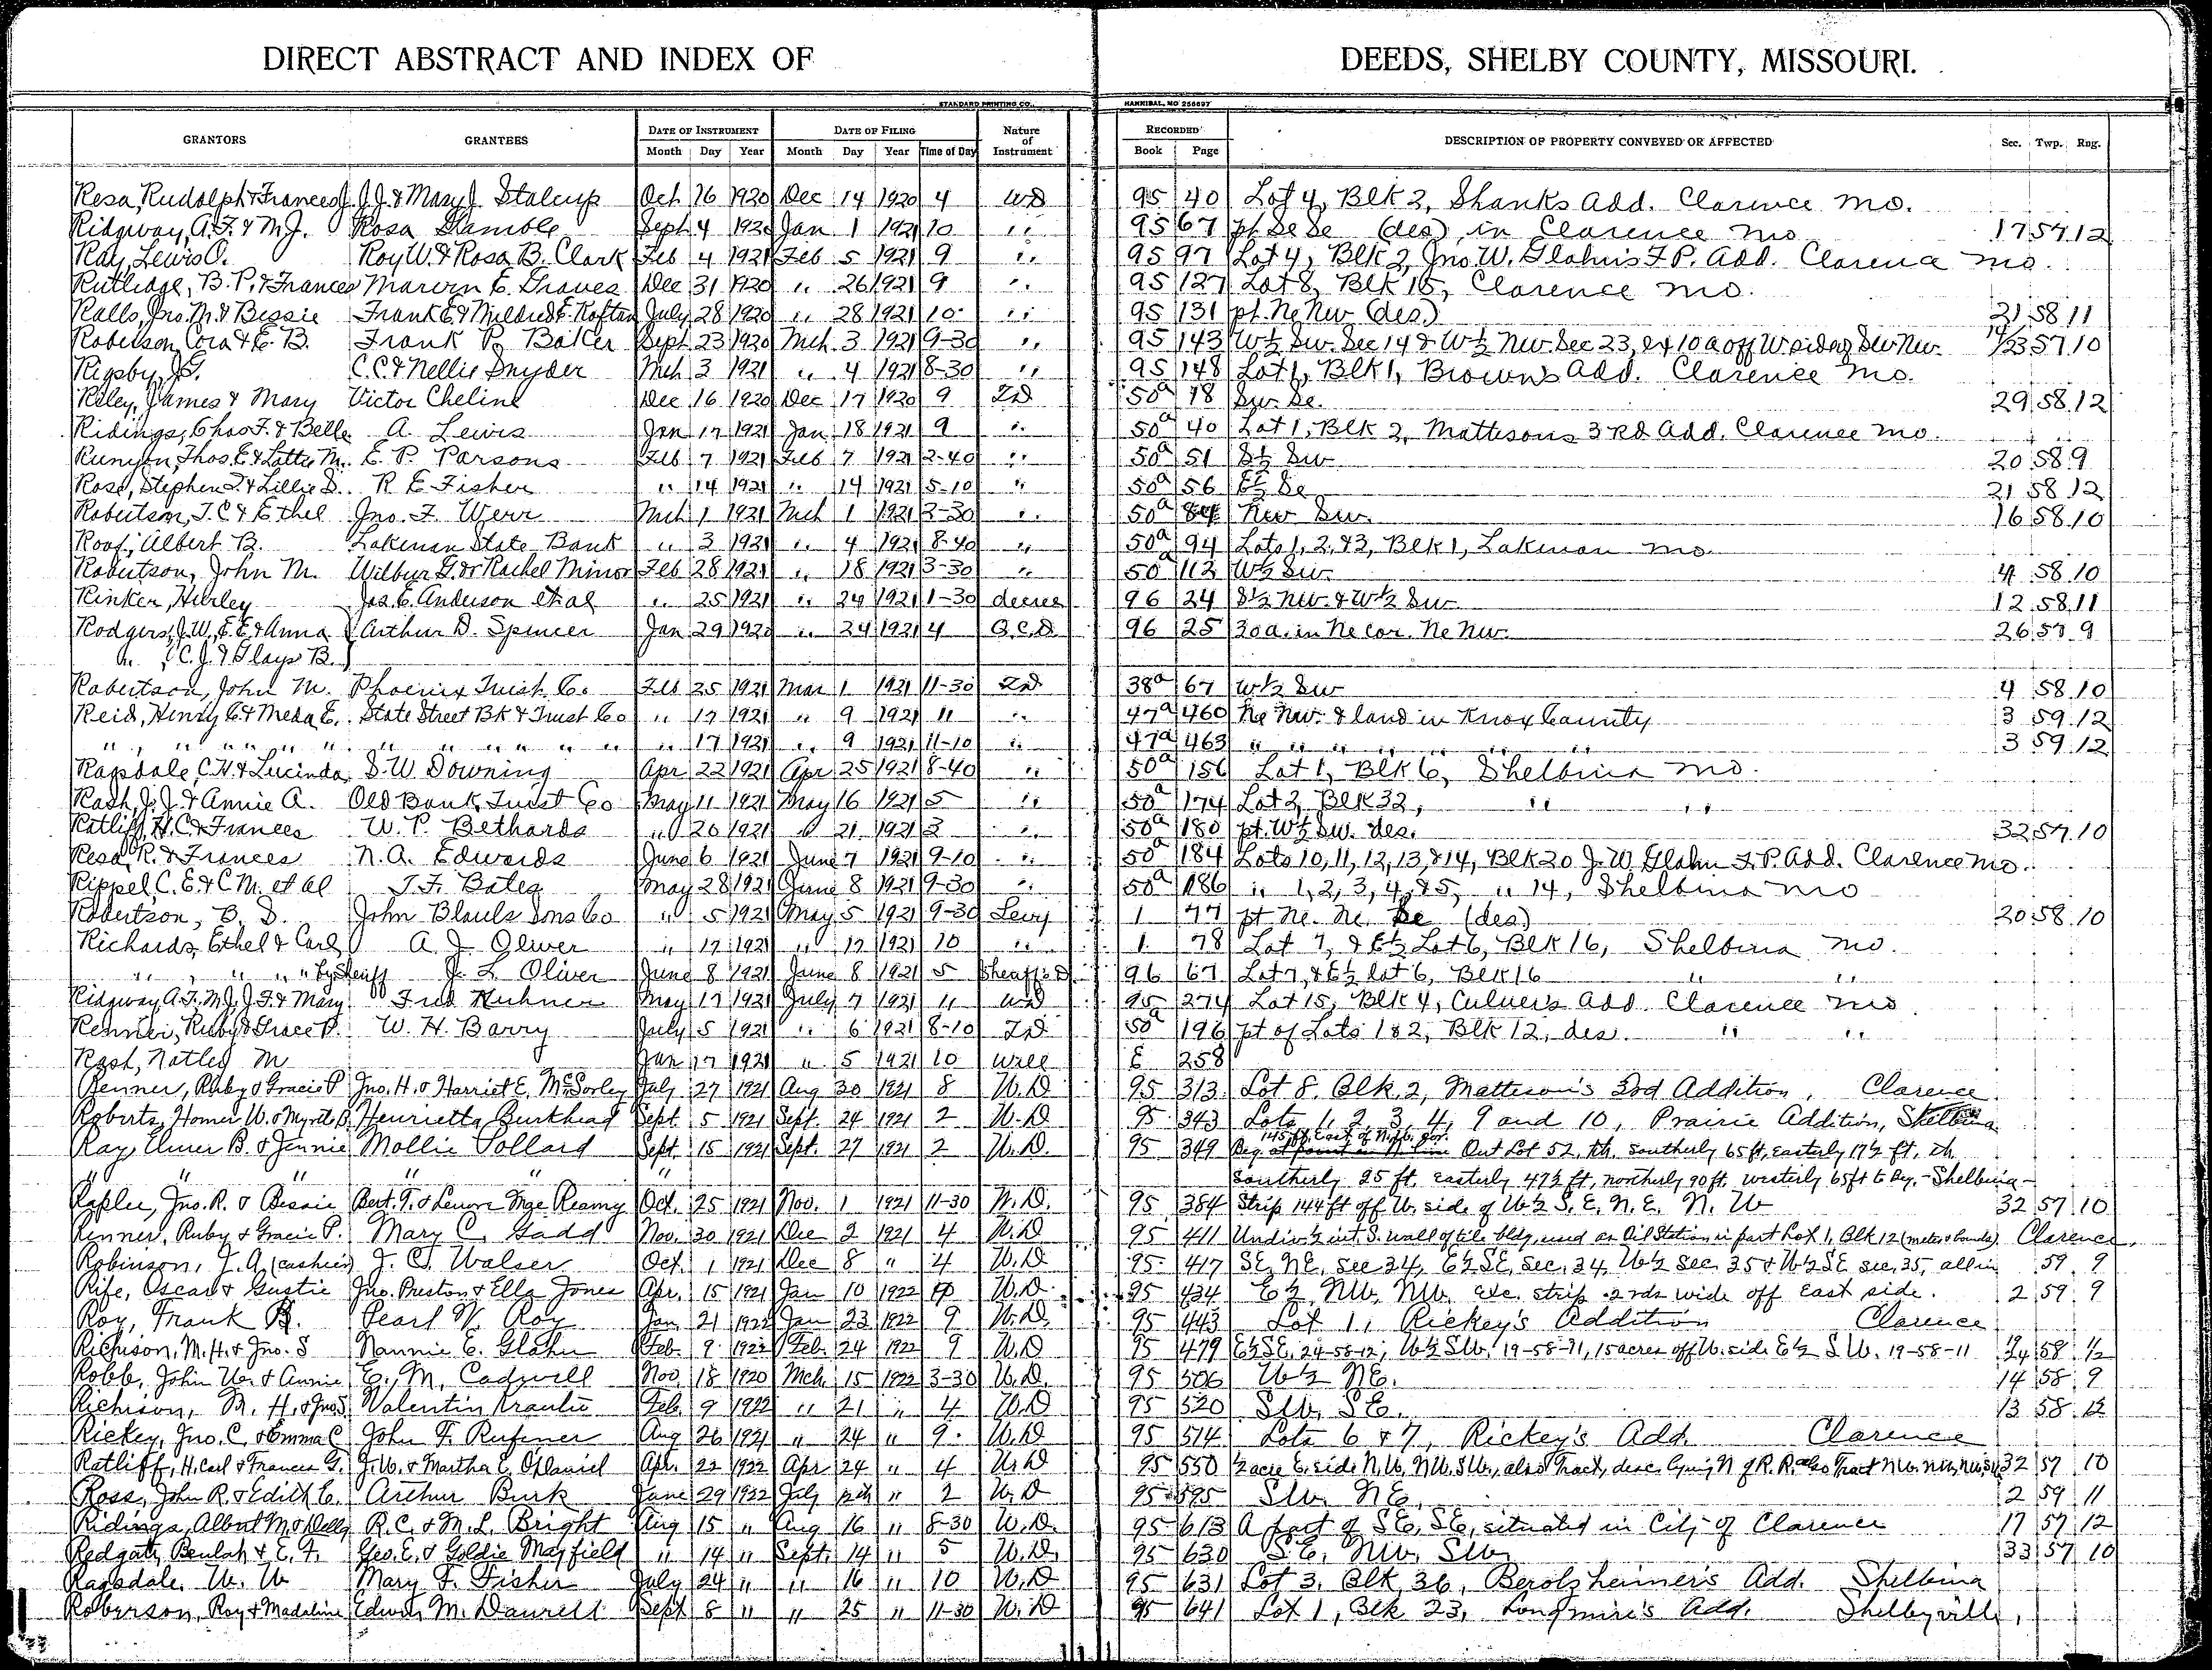 DIRECT ABSTRACT AND INDEX OF DEEDS, SHELBY COUNTY, MISSOURI.
STANDARD PRINTING CO., HANNIBAL, MO 256697
GRANTORS GRANTEES DATE OF INSTRUMENT DATE OF FILING Nature of Instrument RECORDED DESCRIPTION OF PROPERTY CONVEYED OR AFFECTED Sec. Twp. Rng.
Month Day Year Month Day Year Time of Day Book Page
Resa, Rudolph & Frances J. J.J. & Mary J. Stalcup Oct 16 1920 Dec 14 1920 4 WD 95 40 Lot 4, Blk 2, Shanks Add. Clarence Mo.
Ridgway, A.F. & M.J. Rosa Gamble Sept 4 1920 Jan 1 1921 10 " 95 67 pt Se Se (des) in Clarence Mo 17 57 12
Ray, Lewis O. Roy W. & Rosa B. Clark Feb 4 1921 Feb 5 1921 9 " 95 97 Lot 4, Blk 2, Jno. W. Glahn's F.P. Add. Clarence Mo.
Rutledge, B.P. & Frances Marvin E. Graves Dec 31 1920 " 26 1921 9 " 95 127 Lot 8, Blk 15, Clarence Mo.
Ralls, Jno. M. & Bessie Frank E & Mildred E. July 28 1920 " 28 1921 10 " 95 131 pt. Ne Nw (des.) 21 58 11
Roberson, Cora & E.B. Frank P. Baker Sept 23 1920 Mch 3 1921 9-30 " 95 143 W½ Sw. Sec 14 & W½ Nw. Sec 23, ex 10a off W side of Sw Nw. 14/23 57 10
Rigsby, J.G. C.C. & Nellie Snyder Mch 3 1921 " 4 1921 8-30 " 95 148 Lot 1, Blk 1, Brown's Add. Clarence Mo.
Riley, James & Mary Victor Cheline Dec 16 1920 Dec 17 1920 9 TD 50a 18 Sw Se. 29 58 12
Ridings, Chas. F. & Belle A. Lewis Jan 17 1921 Jan 18 1921 9 " 50a 40 Lot 1, Blk 2, Mattesons 3rd Add. Clarence Mo.
Runyon, Thos. E & Lottie M. E. P. Parsons Feb 7 1921 Feb 7 1921 2-40 " 50a 51 S½ Sw 20 58 9
Rose, Stephen L & Lillie D. R E Fisher " 14 1921 " 14 1921 5-10 " 50a 56 E½ Se 21 58 12
Robertson, T.C & Ethel Jno. F. Werr Mch 1 1921 Mch 1 1921 3-30 " 50a 84 Nw Sw. 16 58 10
Roof, Albert B. Lakenan State Bank " 3 1921 " 4 1921 8-40 " 50a 94 Lots 1, 2, & 3, Blk 1, Lakenan Mo.
Robertson, John M. Wilbur G. & Rachel Minor Feb 28 1921 " 18 1921 3-30 " 50a 112 W½ Sw. 4 58 10
Rinker, Hurley Jas. E. Anderson et al " 25 1921 " 24 1921 1-30 decree 96 24 S½ Nw. & W½ Sw 12 58 11
Rodgers, J.W., E.E. & Anna Arthur D. Spencer Jan 29 1920 " 24 1921 4 Q.C.D. 96 25 30a. in Ne cor. Ne Nw. 26 57 9
" (C.J. & Glays B.)
Robertson, John M. Phoenix Trust Co. Feb 25 1921 Mar 1 1921 11-30 TD 38a 67 W½ Sw 4 58 10
Reid, Henry C. & Meda E. State Street Bk & Trust Co " 17 1921 " 9 1921 11 " 47a 460 Ne Nw. & land in Knox County 3 59 12
" " " " " " " " " " " " 17 1921 " 9 1921 11-10 " 47a 463 " " " " " " 3 59 12
Ragsdale, C.H. & Lucinda S.W Downing Apr 22 1921 Apr 25 1921 8-40 " 50a 156 Lot 1, Blk 6, Shelbina Mo.
Rash, J.J. & Annie A. Old Bank Trust Co May 11 1921 May 16 1921 5 " 50a 174 Lot 2, Blk 32, " "
Ratliff, H.C. & Frances W. P. Bethards " 20 1921 " 21 1921 3 " 50a 180 pt. W½ Sw. des. 32 57 10
Resa, R. & Frances N. A. Edwards June 6 1921 June 7 1921 9-10 " 50a 184 Lots 10, 11, 12, 13, & 14, Blk 20 J.W Glahn F.P. Add. Clarence Mo.
Rippel, C.E. & C.M. et al T.F. Bates May 28 1921 June 8 1921 9-30 " 50a 186 " 1, 2, 3, 4, & 5, " 14, Shelbina Mo
Robertson, B. D. John Blauls Sons Co " 5 1921 May 5 1921 9-30 Levy 1 77 pt Ne. Ne. Se (des) 20 58 10
Richards, Ethel & Carl A. J. Oliver " 17 1921 " 17 1921 10 " 1 78 Lot 7, & E½ Lot 6, Blk 16, Shelbina Mo.
" " " " by Sheriff J. L. Oliver June 8 1921 June 8 1921 5 Sheriff's D 96 67 Lot 7, & E½ lot 6, Blk 16 " "
Ridgway A.F., M.J., J.F. & Mary Fred Kuhner May 17 1921 July 7 1921 11 WD 95 274 Lot 15, Blk 4, Culver's Add Clarence Mo
Renner, Ruby & Grace P. W. H. Barry July 5 1921 " 6 1921 8-10 TD 50a 196 pt of Lots 1 & 2, Blk 12, des. " "
Rash, Natley M Jan 17 1921 " 5 1921 10 Will E 258
Renner, Ruby & Gracie P Jno. H. & Harriet E. McSorley July 27 1921 Aug 30 1921 8 W.D 95 313 Lot 8, Blk. 2, Matteson's 3rd Addition, Clarence
Roberts, Homer W. & Myrtle B. Henrietta Burkhead Sept. 5 1921 Sept. 24 1921 2 W.D 95 343 Lots 1, 2, 3, 4, 9 and 10, Prairie Addition, Shelbina
Ray, Elmer B. & Jennie Mollie Pollard Sept. 15 1921 Sept. 27 1921 2 W.D. 95 349 Beg. 145 ft. East of N.W. Cor. Out Lot 52, th. southerly 65 ft, easterly 17½ ft, th
" " " " " southerly 25 ft. easterly 47½ ft, northerly 90 ft. westerly 65 ft to Beg. - Shelbina -
Raplee, Jno. R. & Bessie Bert. T. & Lenore Mge Reamy Oct. 25 1921 Nov. 1 1921 11-30 W.D. 95 384 Strip 144 ft off W. side of W½ S. E. N. E. N. W 32 57 10
Renner, Ruby & Gracie P. Mary C. Gadd Nov. 30 1921 Dec 2 1921 4 W.D 95 411 Undiv ½ int. S. wall of tile bldg, used as Oil Station in part Lot 1, Blk 12 (metes & bounds). Clarence,
Robinson, J. A. (cashier) J. C. Walser Oct. 1 1921 Dec 8 " 4 W.D 95 417 SE, NE, sec 34, E½ SE, Sec. 34, W½ Sec 35 & W½ SE sec. 35, all in 59 9
Rife, Oscar & Gustie Jno. Preston & Ella Jones Apr. 15 1921 Jan 10 1922 W.D. 95 434 E½, NW, NW, exc. strip 2 rds wide off east side. 2 59 9
Roy, Frank B. Pearl N. Roy Jan 21 1922 Jan 23 1922 9 W.D. 95 443 Lot 1, Rickey's Addition Clarence
Richison, M.H. & Jno. S Nannie E. Glahn Feb. 9 1922 Feb. 24 1922 9 W.D 95 479 E½ SE, 24-58-12, W½ SW, 19-58-11, 15 acres off W. side E½ SW. 19-58-11 19/24 58 11/12
Robb, John W. & Annie E. M. Cadwell Nov. 18 1920 Mch. 15 1922 3-30 W.D. 95 506 W½ NE. 14 58 9
Richison, M. H. & Jno S Valentin Feb. 9 1922 " 21 " 4 W.D 95 520 SW, SE. 13 58 12
Rickey, Jno. C. & Emma C John F. Rufener Aug 26 1921 " 24 " 9 W.D 95 514 Lots 6 & 7, Rickey's Add. Clarence
Ratliff, H. Carl & Frances G. J.W. & Martha E. O'Daniel Apr. 22 1922 Apr 24 " 4 W.D 95 550 ½ acre E. side N.W, NW, SW., also Tract, desc. lying N of R.R. also Tract NW. NW, NW, SW 32 57 10
Ross, John R. & Edith E. Arthur Burk June 29 1922 July 12th " 2 W.D 95 595 SW. NE. 2 59 11
Ridings, Albert M. & Dolly R. C. & M. L. Bright Aug 15 " Aug 16 " 8-30 W.D. 95 613 A part of SE, SE, situated in City of Clarence 17 57 12
Redgate, Beulah & E. F. Geo. E. & Goldie Mayfield " 14 " Sept. 14 " 5 W.D. 95 630 S.E, NW, SW 33 57 10
Ragsdale, W. W Mary F. Fisher July 24 " " 16 " 10 W.D 95 631 Lot 3, Blk 36, Berolzheimer's Add. Shelbina
Roberson, Roy & Madaline Edwin M. Sept 8 " " 25 " 11-30 W.D 95 641 Lot 1, Blk 23, Longmire's Add. Shelbyville,